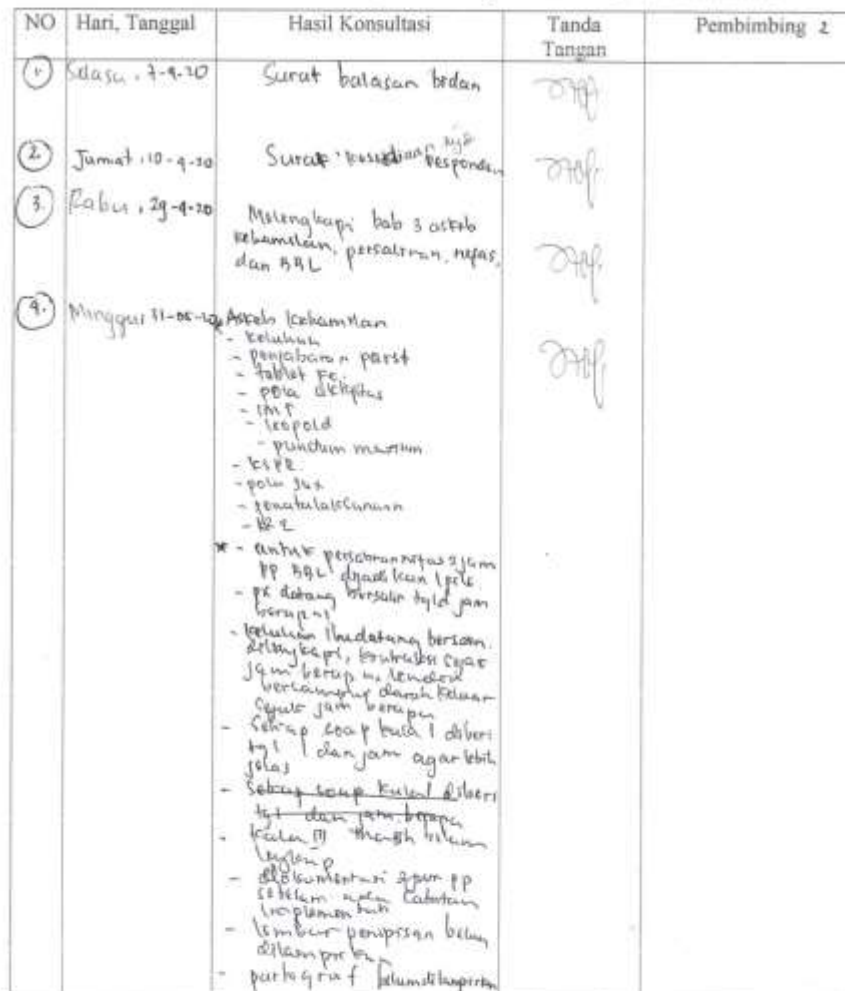 NO Hari, Tanggal Hasil Konsultasi Tanda Tangan Pembimbing 2
1. Selasa, 7-4-20 Surat balasan bidan
2. Jumat, 10-4-20 Surat responden
3. Rabu, 29-4-20 Melengkapi bab 3 askeb
kehamilan, persalinan, nifas,
dan BBL
4. Minggu, 31-05-20 Askeb kehamilan
- keluhan
- penjabaran
- tablet Fe
- pola aktifitas
- IMT
- leopold
- punctum
- KSPR
- pola sex
- penatalaksanaan
*- untuk persalinan nifas 2 jam
PP BBL dijadikan 1
- px datang bersalin tgl jam
berapa
- keluhan ibu datang
dilengkapi, kontraksi sejak
jam berapa, lendir
bercampur darah keluar
sejak jam berapa
- Setiap soap kala 1 diberi
tgl dan jam agar lebih
jelas
- Setiap soap kala 1 diberi
tgl dan jam berapa
- Kala III
lengkap
- dokumentasi 2 jam PP
catatan
implementasi
- lembar penapisan belum
dilampirkan
- partograf belum dilampirkan